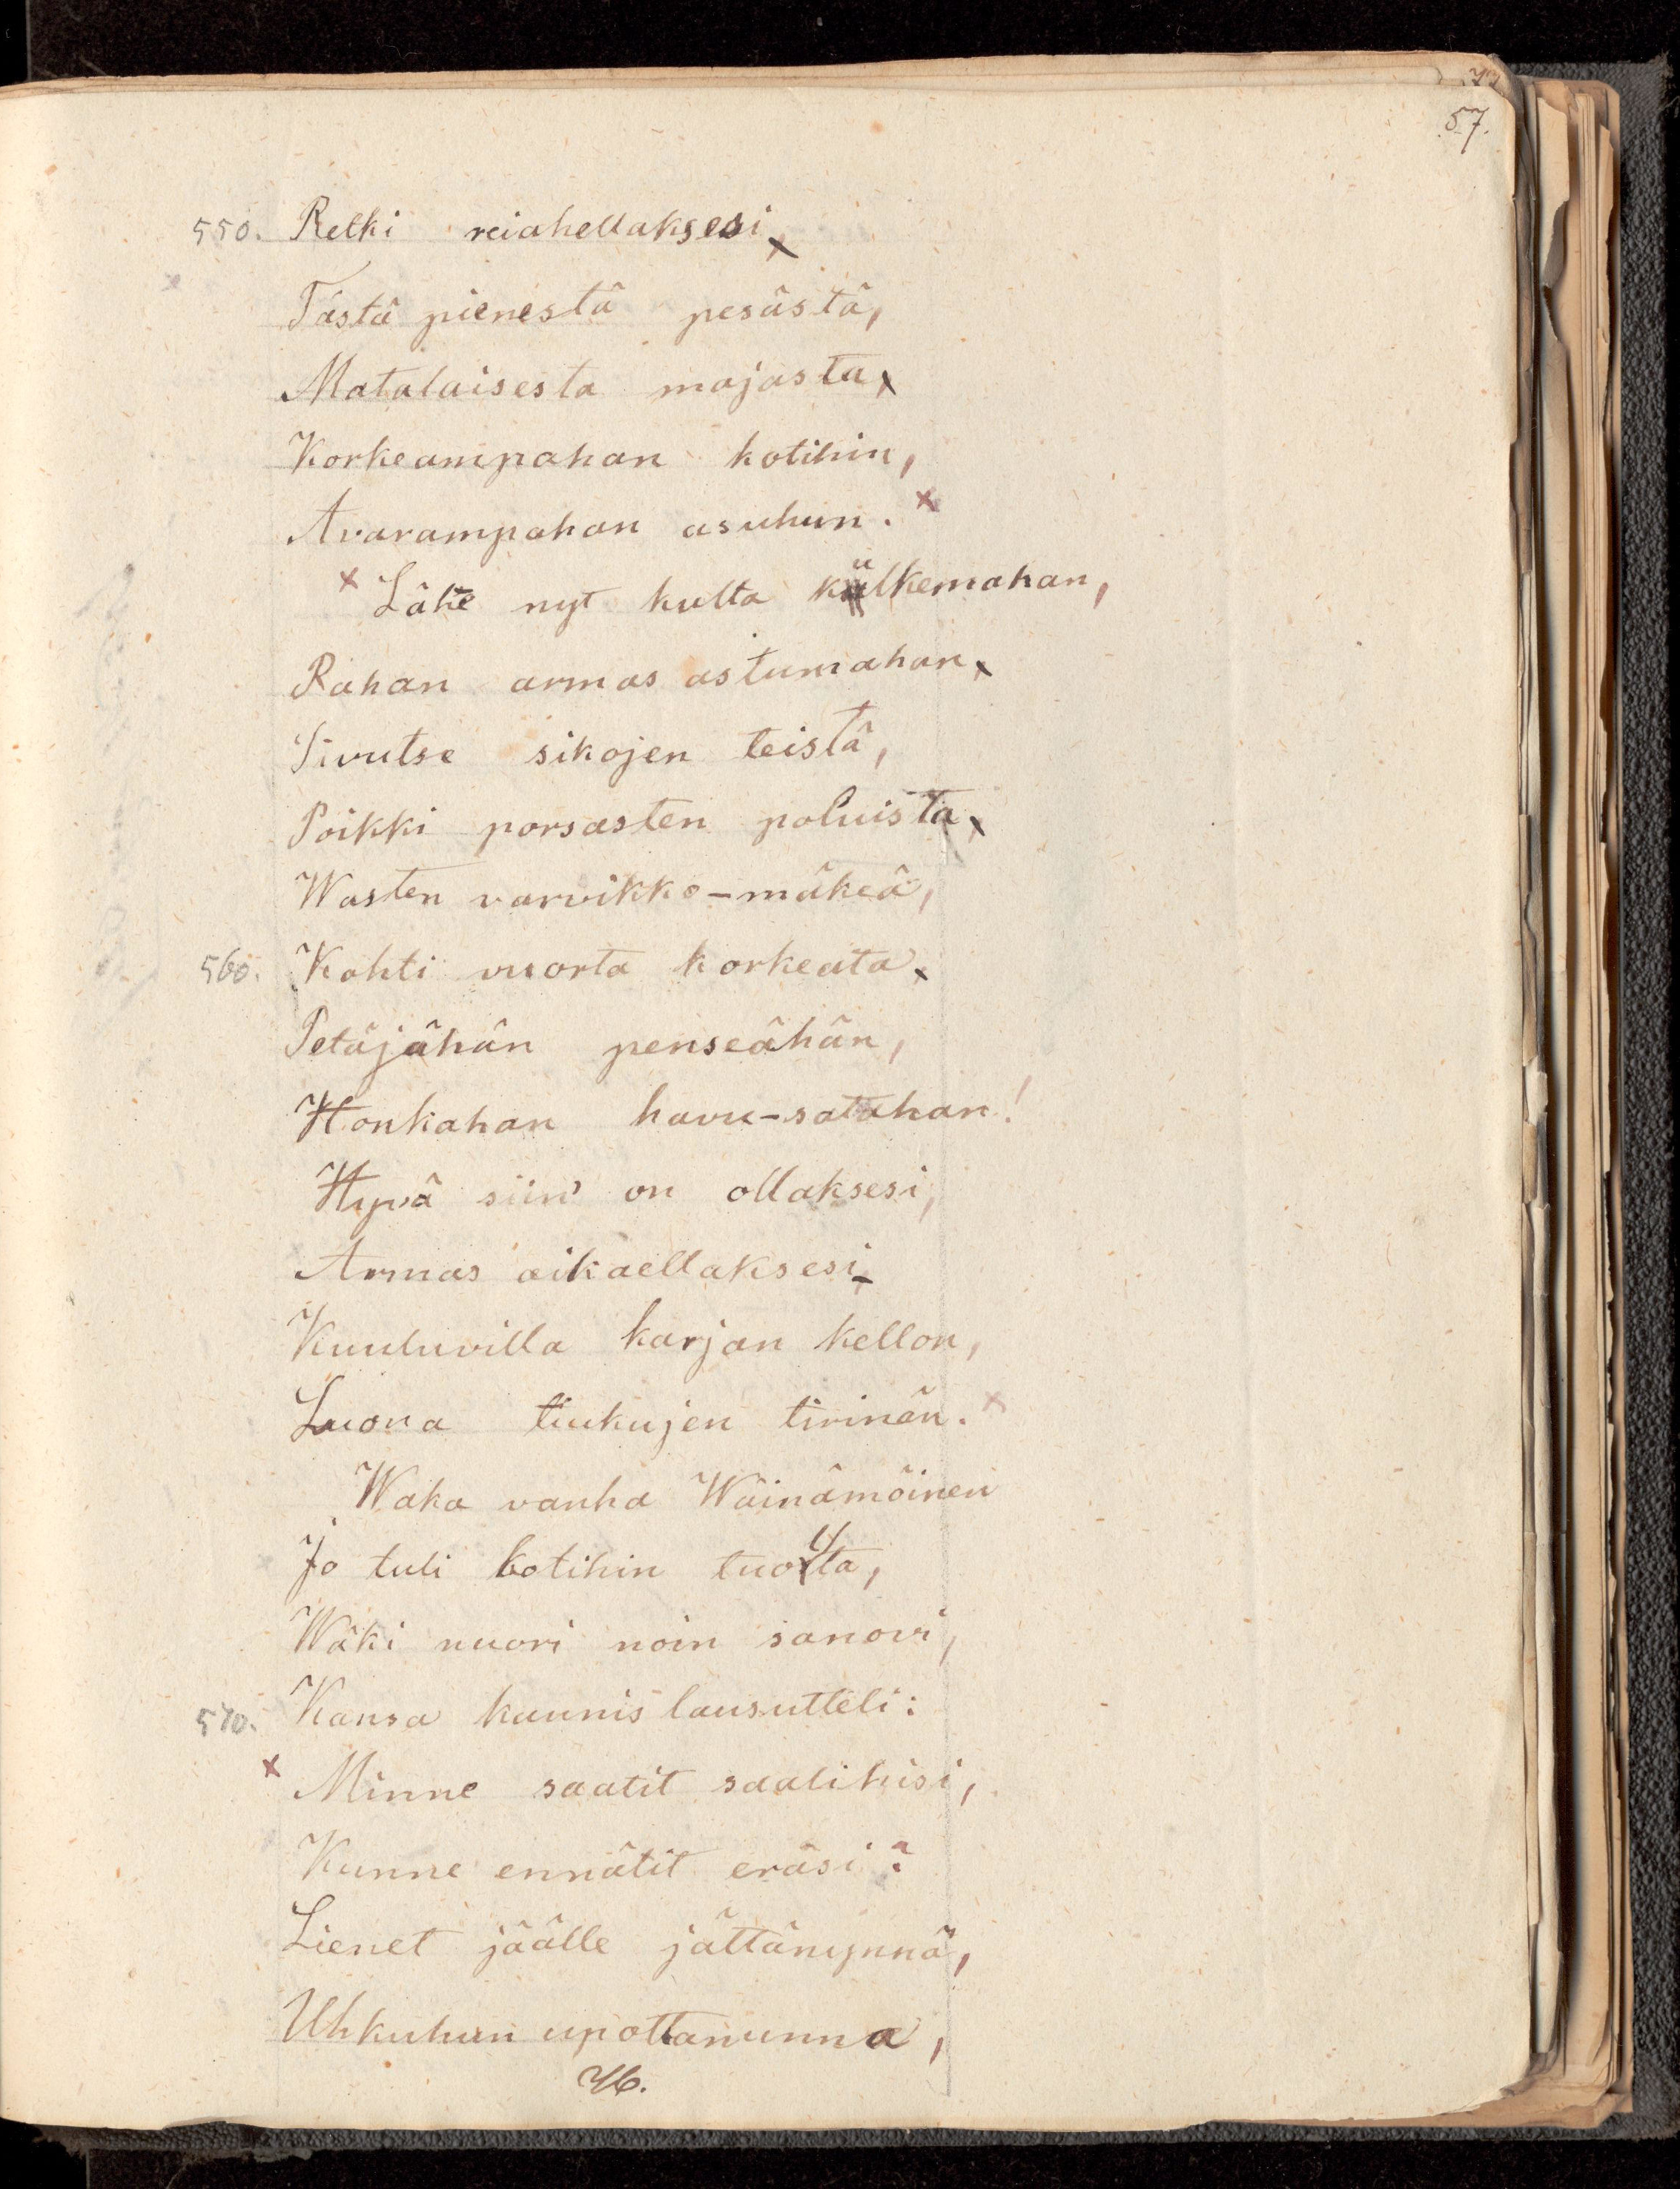 57.
550. Retki reiahellaksesi
Tästä pienestä pesästä,
Matalaisesta majasta
Korkeampahan kotihin,
Avarampahan asuhun. x
x Lähe nyt kulta kulkemahan,
Rahan armas astumahan
Sivutse sikojen teistä,
Poikki porsasten poluista
Wasten varvikko-mäkeä,
560. Kohti vuorta korkeata
Petäjähän penseähän,
Honkahan havu-satahan!
Hyvä siin' on ollaksesi,
Armas aikaellaksesi
Kuuluvilla karjan kellon,
Luona tiukujen tirinän. x
Waka vanha Wäinämöinen
Jo tuli kotihin tuolta,
Wäki nuori noin sanovi,
570. Kansa kaunis lausutteli:
x Minne saatit saalihisi,
Kunne ennätit eräsi?
Lienet jäälle jättänynnä,
Uhkuhun upottanunna,